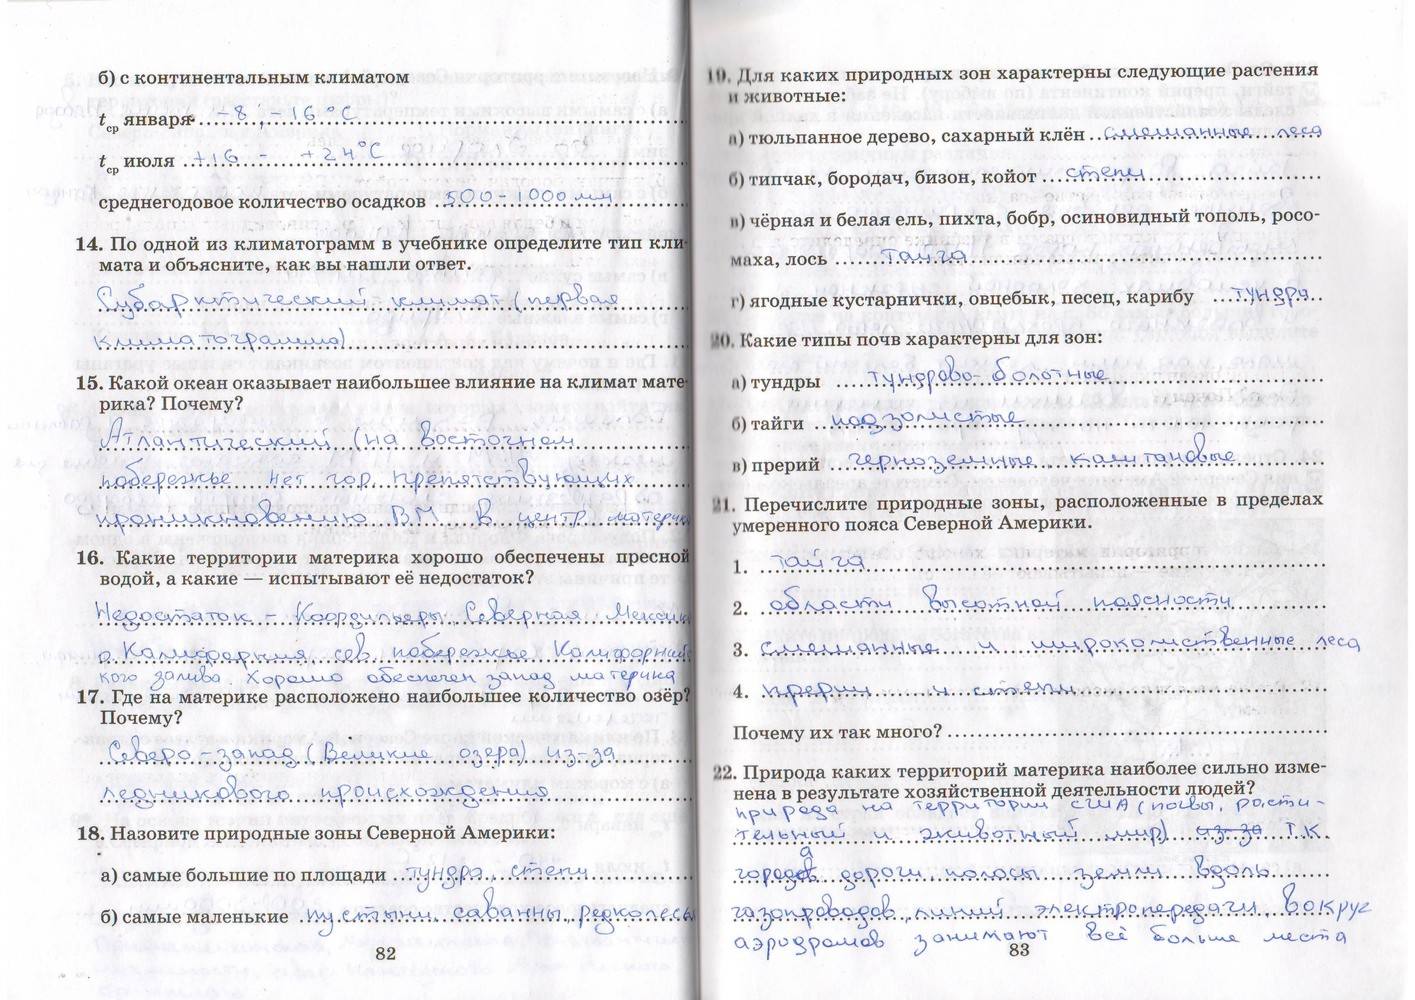 б) с континентальным климатом
tср января -8 , -16 °C
tср июля +16 - +24°C
среднегодовое количество осадков 500-1000мм
14. По одной из климатограмм в учебнике определите тип кли-
мата и объясните, как вы нашли ответ.
Субарктический климат (первая
климатограмма)
15. Какой океан оказывает наибольшее влияние на климат мате-
рика? Почему?
Атлантический (на восточном
побережье нет гор, препятствующих
проникновению ВМ в центр материка
16. Какие территории материка хорошо обеспечены пресной
водой, а какие — испытывают её недостаток?
Недостаток - Кордильеры Северная Мексика
сев. побережье
кого залива. Хорошо обеспечен запад материка
17. Где на материке расположено наибольшее количество озёр?
Почему?
Северо-запад (Великие озера) из-за
ледникового происхождения
18. Назовите природные зоны Северной Америки:
а) самые большие по площади тундра, степи
б) самые маленькие пустыни саванны, редколесь
82
19. Для каких природных зон характерны следующие растения
и животные:
а) тюльпанное дерево, сахарный клён смешанные леса
б) типчак, бородач, бизон, койот степи
в) чёрная и белая ель, пихта, бобр, осиновидный тополь, росо-
маха, лось тайга
г) ягодные кустарнички, овцебык, песец, карибу тундра
20. Какие типы почв характерны для зон:
а) тундры тундрово-болотные
б) тайги подзолистые
в) прерий черноземные каштановые
21. Перечислите природные зоны, расположенные в пределах
умеренного пояса Северной Америки.
1. тайга
2. области высотной поясности
3. смешанные и широколиственные леса
4. прерии и степи
Почему их так много?
22. Природа каких территорий материка наиболее сильно изме-
нена в результате хозяйственной деятельности людей?
природа на территории США (почвы, расти-
тельный и животный мир) из-за т.к
города дороги полосы земли вдоль
газопроводов, линий электропередачи, вокруг
аэродромов занимают всё больше места
83